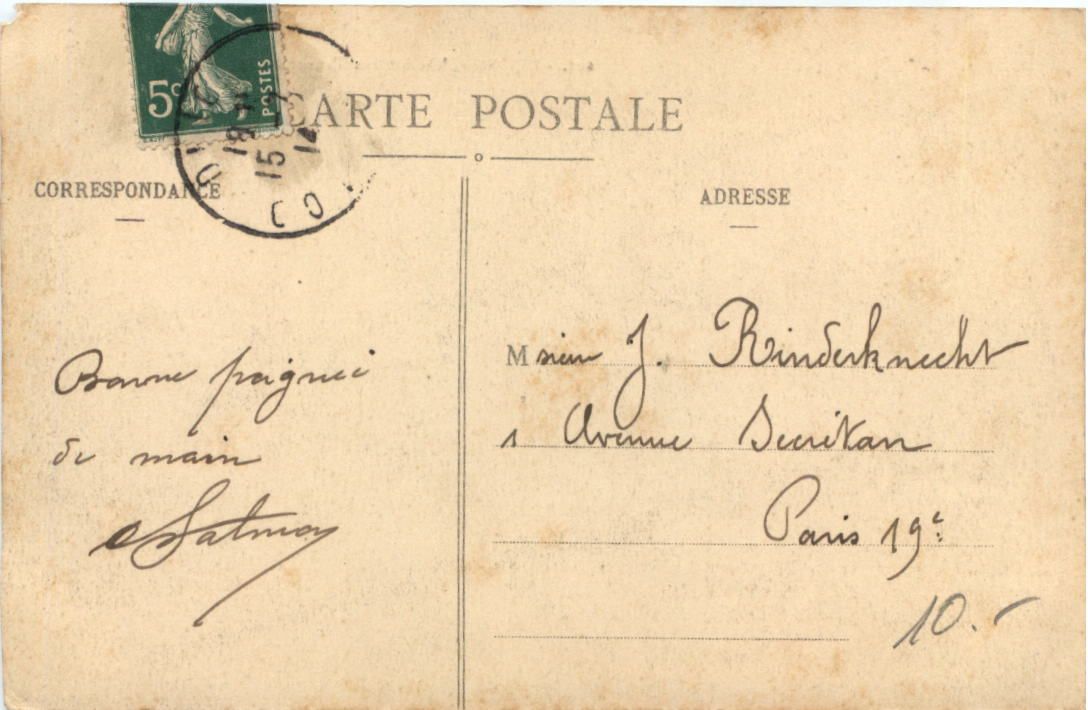 5c
POSTES
CARTE POSTALE
18
15
14
CORRESPONDANCE
ADRESSE
Bonne poignée
de main
Salmon
Msieur J. Rinderknecht
1 Avenue Secrétan
Paris 19e
10.-